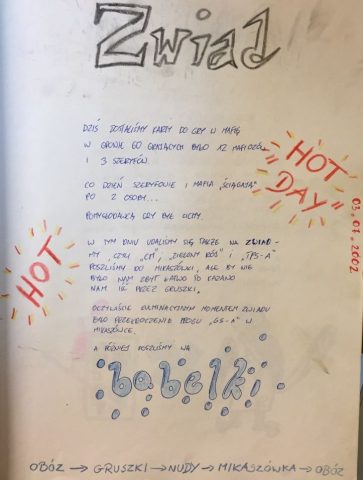 Zwiad
DZIŚ DOSTALIŚMY KARTY DO GRY W MAFIĘ
W GRONIE 60 GRAJĄCYCH BYŁO 12 MAFIOZÓW
I 3 SZERYFÓW.
CO DZIEŃ SZERYFOWIE I MAFIA „ŚCIĄGAJĄ"
PO 2 OSOBY...
POMYSŁODAWCĄ GRY BYŁ UCHY.
"HOT DAY"
03.07.2002
HOT
W TYM DNIU UDALIŚMY SIĘ TAKŻE NA ZWIAD-
MY, CZYLI „CM", „ZIELONY RÓJ" I „TPS-A"
POSZLIŚMY DO MIKASZÓWKI, ALE BY NIE
BYŁO NAM ZBYT ŁATWO TO KAZANO
NAM IŚĆ PRZEZ GRUSZKI.
OCZYWIŚCIE KULMINACYJNYM MOMENTEM ZWIADU
BYŁO PRZEKROCZENIE PROGU „GS-A" W
MIKASZÓWCE.
A PÓŹNIEJ POSZLIŚMY NA
bąbelki
OBÓZ → GRUSZKI → NUDY → MIKASZÓWKA → OBÓZ